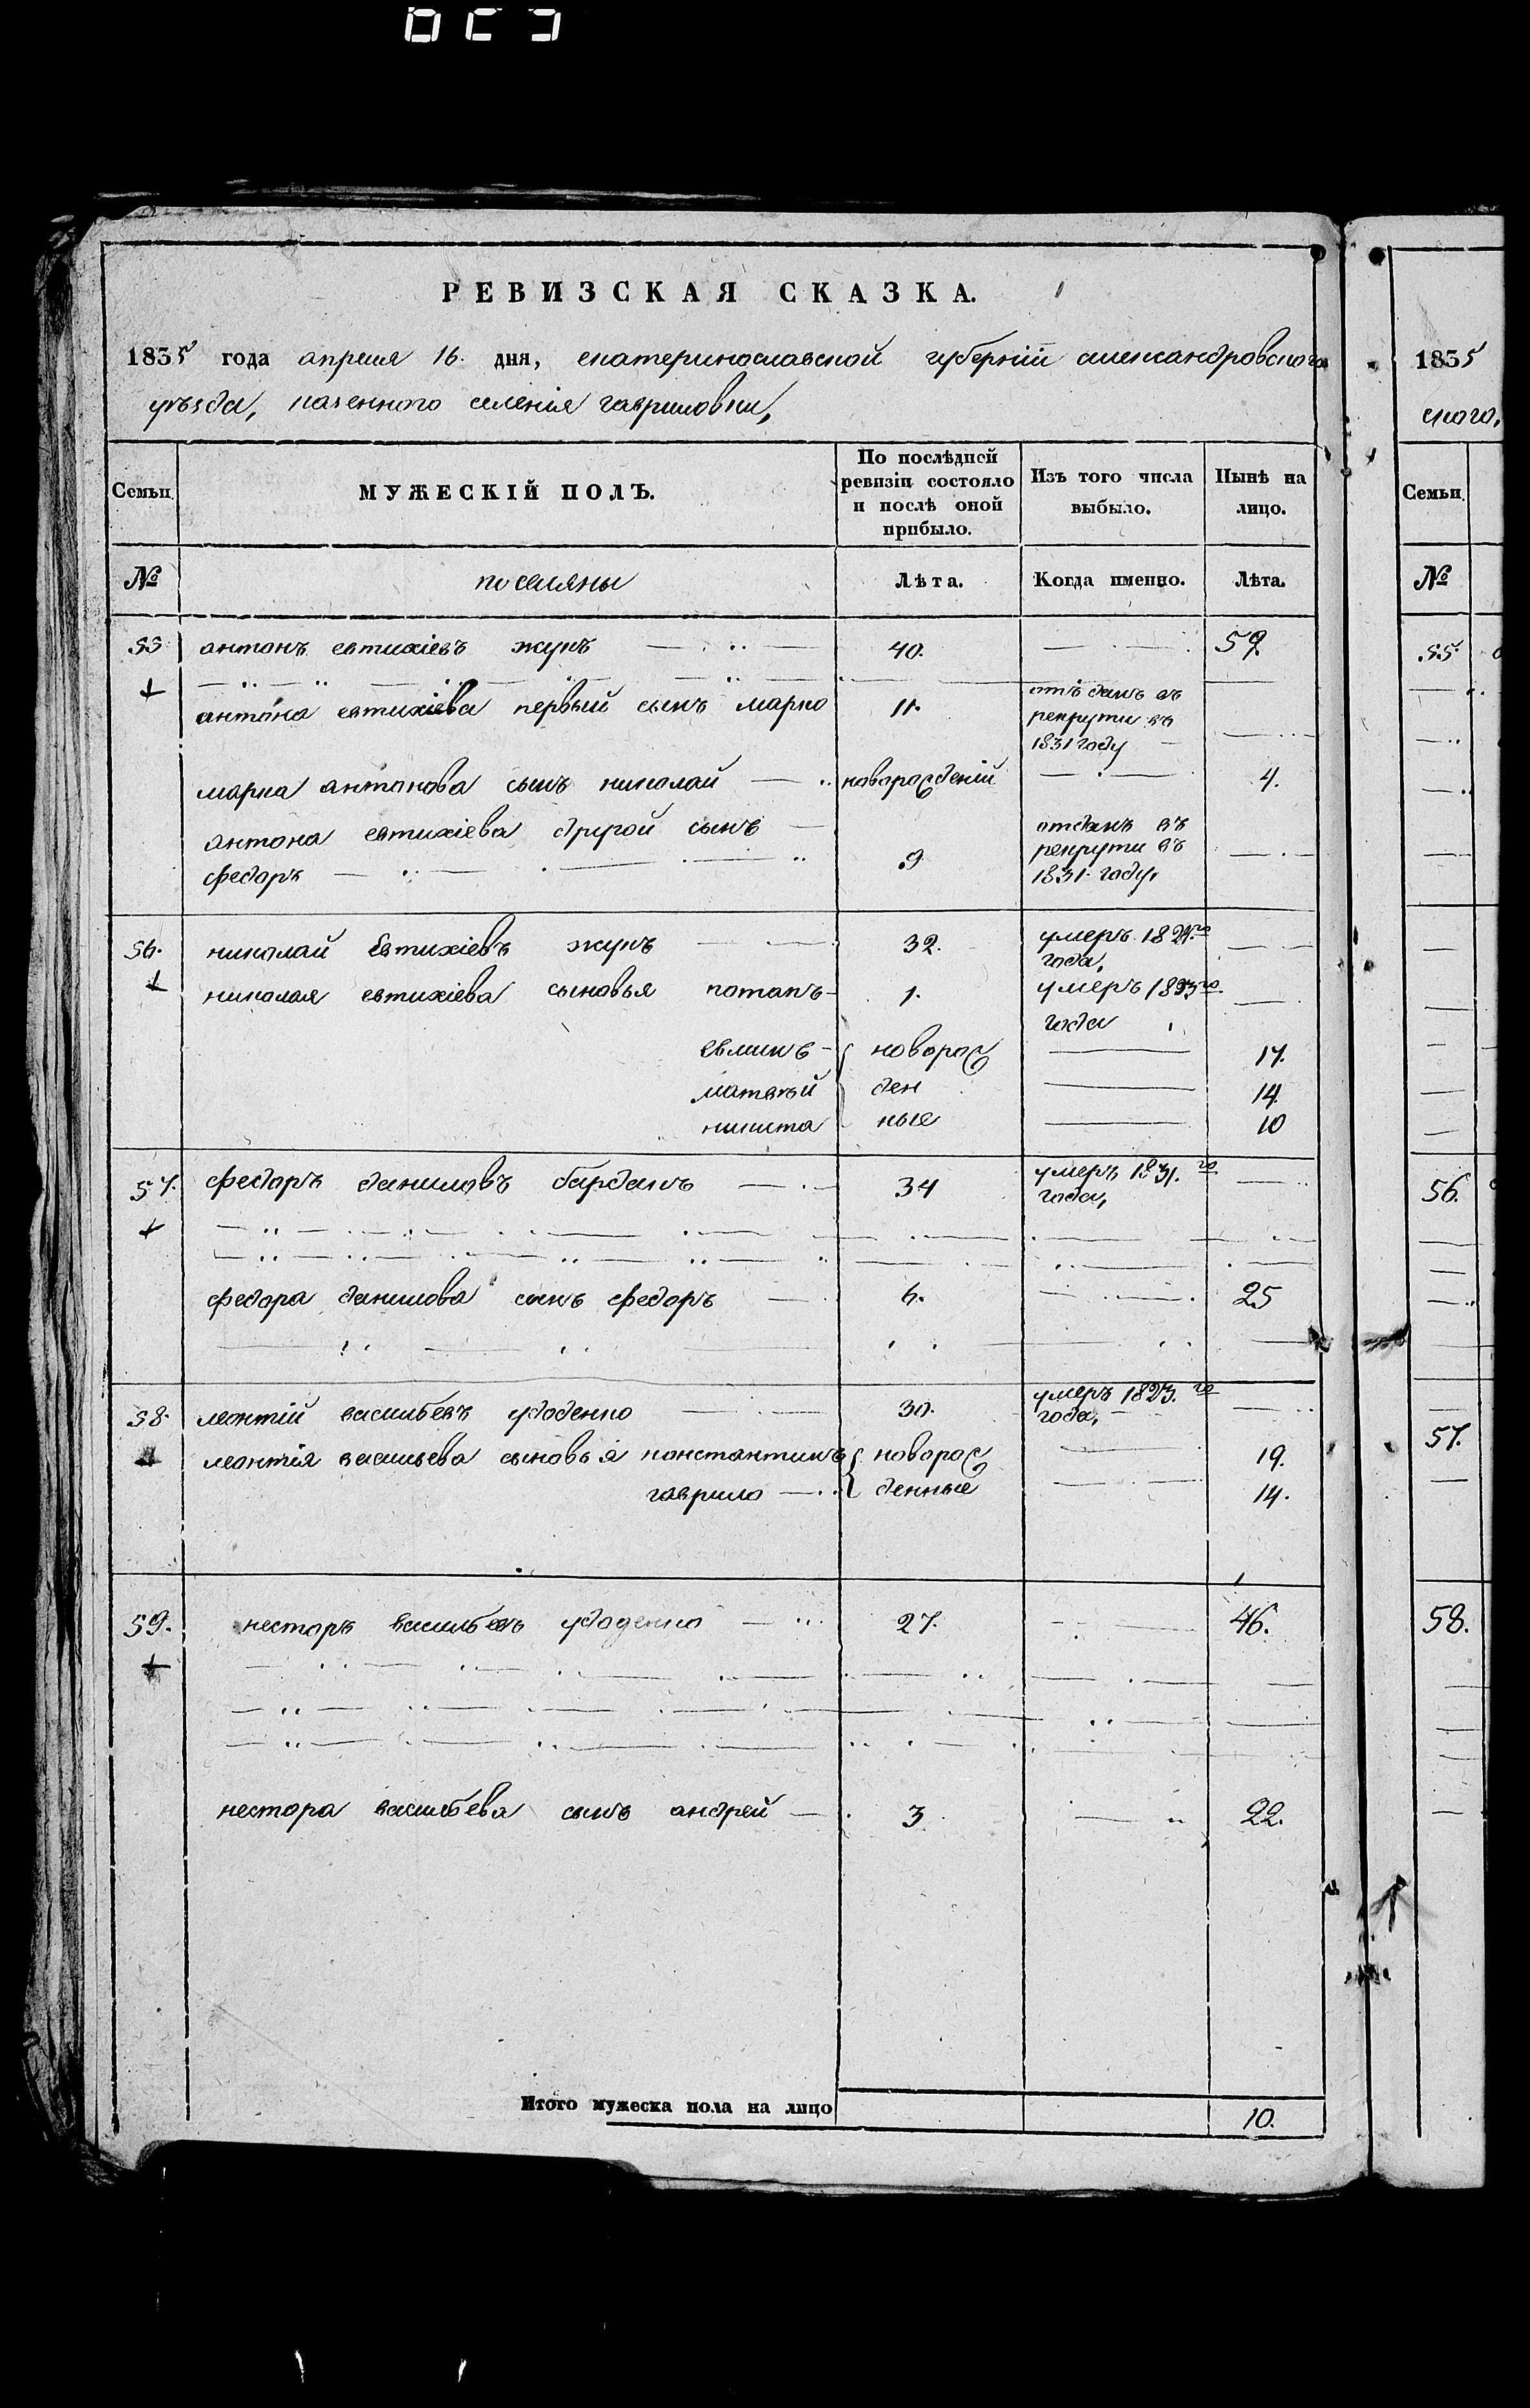 РЕВИЗСКАЯ СКАЗКА.
1835 года апреля 16. дня, екатеринославской губерніи александровского
уѣзда, казенного селенія гавриловки,
Семьи. МУЖЕСКІЙ ПОЛЪ. По послѣдней ревизіи состояло и послѣ оной прибыло. Изъ того числа выбыло. Нынѣ на лицо.
№ поселяны Лѣта. Когда именно. Лѣта.
55 антонъ евтихіевъ жукъ 40. 59.
антона евтихіева первый сынъ марко 11. отъданъ въ рекрути въ 1831 году
марка антонова сынъ николай новорожденій 4.
антона евтихіева другой сынъ
федоръ 9 отданъ въ рекрути въ 1831 году,
56. николай евтихіевъ жукъ 32. умеръ года,
николая евтихіева сыновья потапъ 1. умеръ года
новорож 17.
матвѣй ден 14.
никита ные 10
57. федоръ даниловъ бардакъ 34 умеръ 1831.го года,
федора данилова сынъ федоръ 6. 25
58. леонтій васильевъ удоденко 30. умеръ 1823.го года,
леонтія васильева сыновья константинъ новорож 19.
гаврило денные 14.
59. несторъ васильевъ удоденко 27. 46.
нестора васильева сынъ андрей 3 22.
Итого мужеска пола на лицо 10.
1835
ского,
Семьи.
№
55
56.
57.
58.